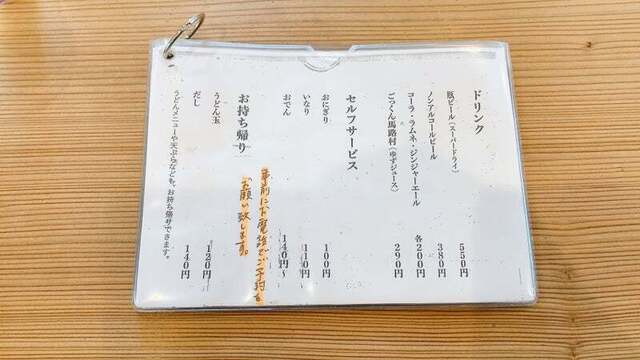 ドリンク
瓶ビール(スーパードライ) 550円
ノンアルコールビール 380円
コーラ・ラムネ・ジンジャーエール 各200円
ごっくん馬路村(ゆずジュース) 290円
セルフサービス
おにぎり 100円
いなり 110円
おでん 140円～
お持ち帰り
事前にお電話でご予約を
お願い致します。
うどん玉 120円
だし 140円
うどんメニューや天ぷらなども、お持ち帰りできます。